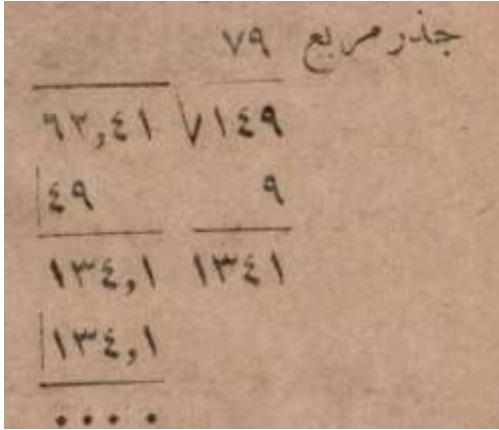 جذر مربع ٧٩
٦٢,٤١ ٧١٤٩
٤٩ ٩
١٣٤,١ ١٣٤١
١٣٤,١
٠ ٠ ٠ ٠